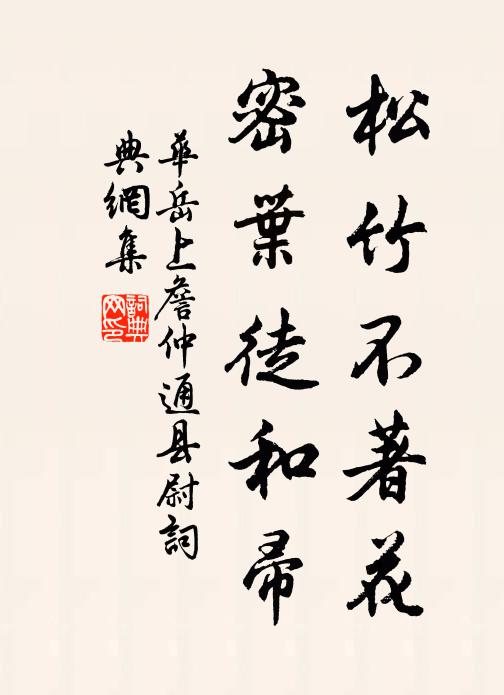 松竹不著花
密葉徒和帚
華岳上詹仲通县尉詞
典網集
詞典网印